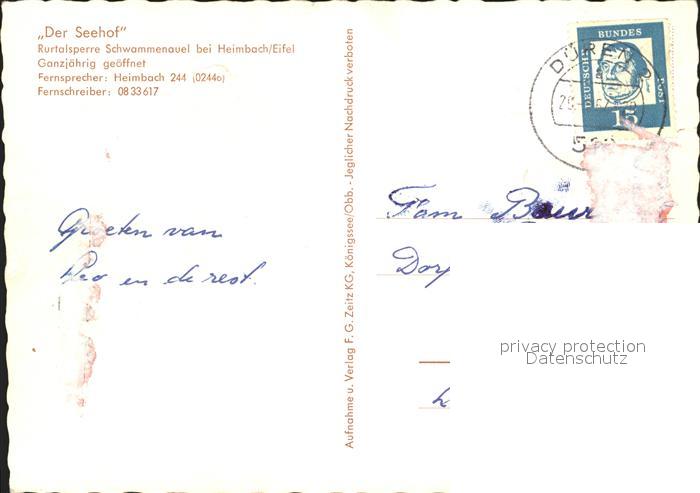 „Der Seehof"
Rurtalsperre Schwammenauel bei Heimbach/Eifel
Ganzjährig geöffnet
Fernsprecher: Heimbach 244 (02446)
Fernschreiber: 0833617
Groeten van
en de rest.
Aufnahme u. Verlag F. G. Zeitz KG, Königssee/Obb. - Jeglicher Nachdruck verboten
DEUTSCHE
BUNDES
POST
15
DÜREN
Fam
privacy protection
Datenschutz